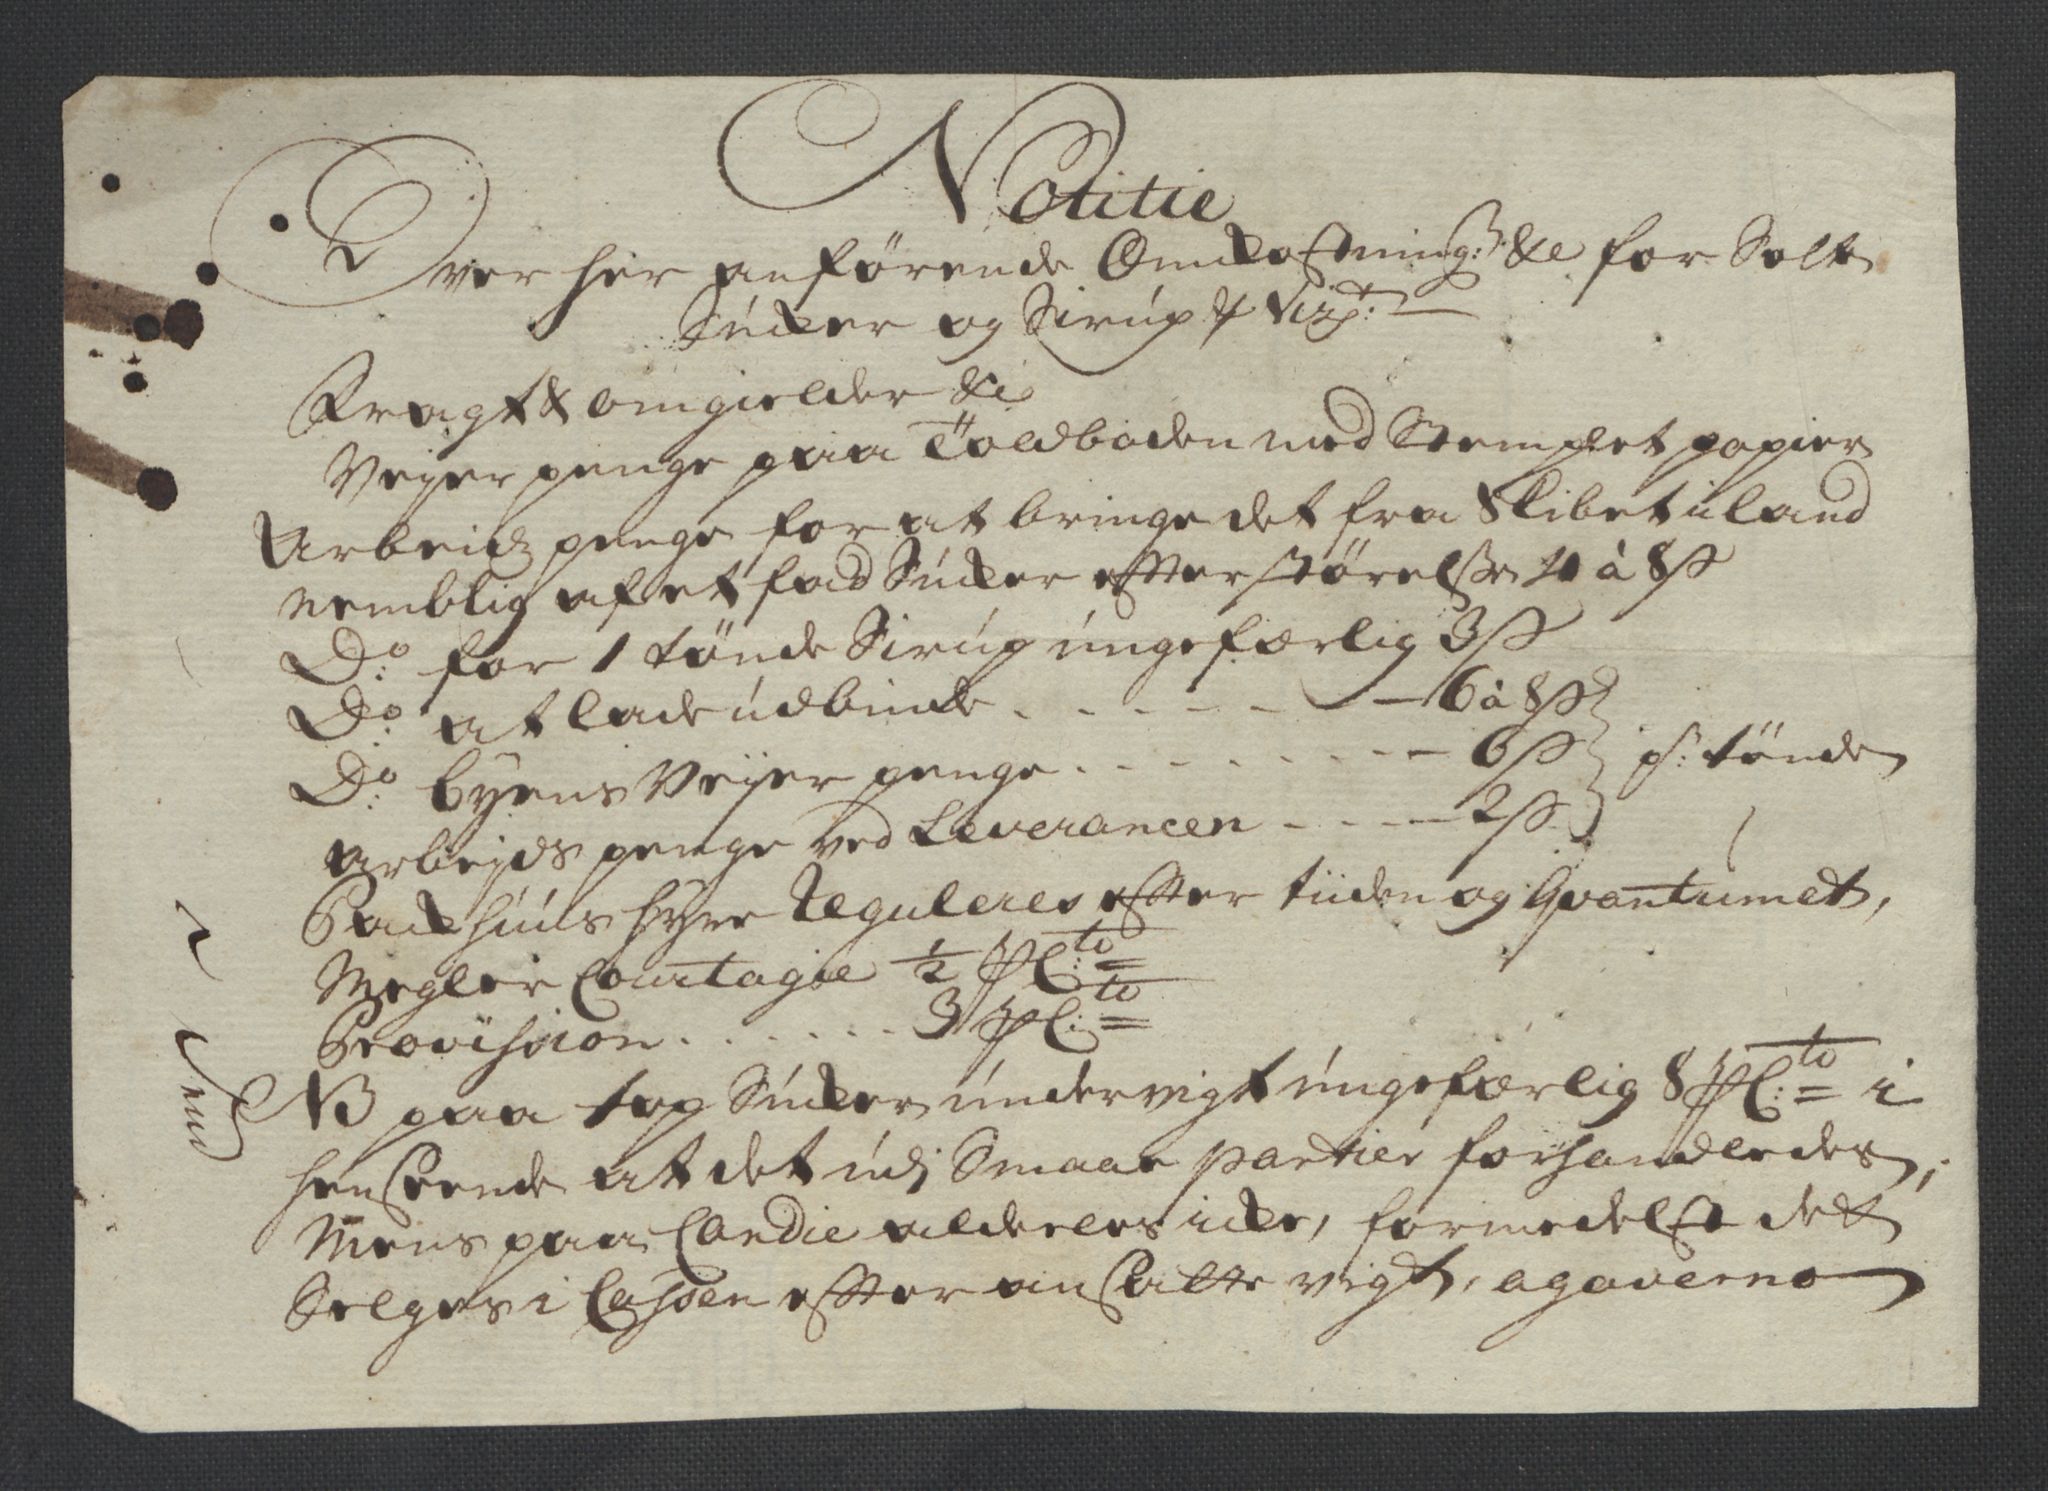 Notitie
Over her anförende Omkostning:r &c for Solte
Sucker og Sirúp &
Fragt & omgielder &c
Veÿer penge paa Toldboden med Stemplet papier
Arbeids penge for at bringe det fra Skibet i land
nemblig af et fad Súcker effter störelsse 4 à 8 ß
Do: for 1 tönde Sirúp úngefærlig 3 ß
Do: at lade údbinde . . . . . . 6 à 8 ß
Do: byens Veÿer penge . . . . . . . . 6 ß pr: tönde
arbeÿds penge ved Leverancen - - - - 2 ß
Packhúús hÿre Reguleres effter tiiden og Qvantúmet,
Megler Courtagie ½ PC:to
Provision . . . . . . 3 PC:to
NB paa top Súcker úndervigt úngefærlig 8 PC:to i
henseende at det údj Smaae partier forhandledes,
Mens paa Candie aldeeles icke, formedelst det
Selges i Cassen effter ansatte vigt, agaverno